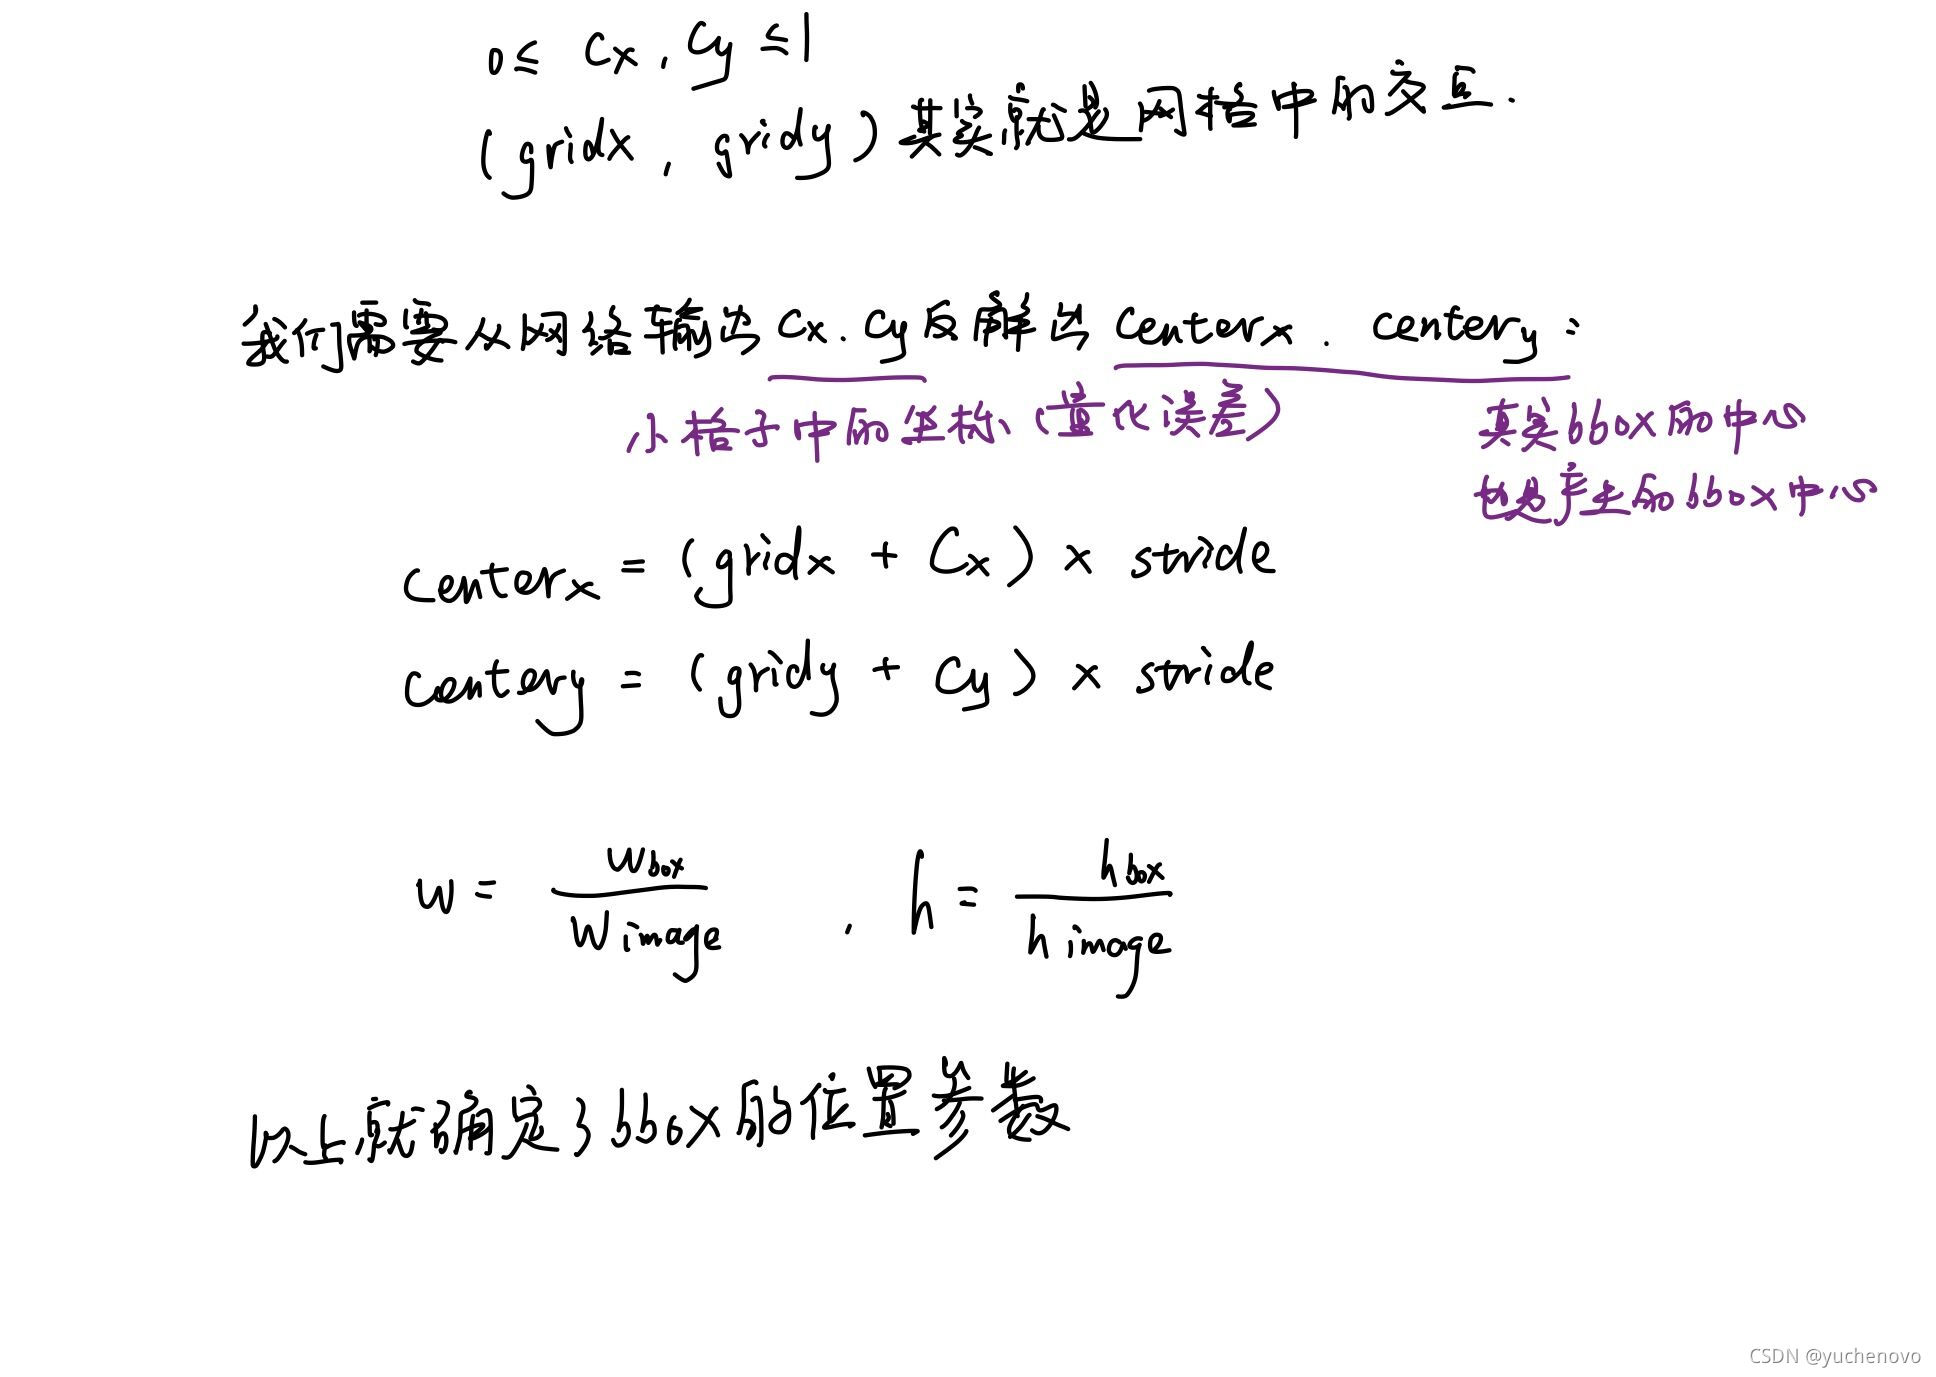 0 ≤ Cx , Cy ≤ 1
( gridx , gridy ) 其实就是网格中的交互.
我们需要从网络输出 Cx . Cy 反解出 Centerx . Centery :
小格子中的坐标 (量化误差)
真实bbox的中心
也是产生的bbox中心
Centerx = ( gridx + Cx ) × stride
Centery = ( gridy + Cy ) × stride
w = Wbox / Wimage , h = hbox / himage
以上就确定了bbox的位置参数
CSDN @yuchenovo